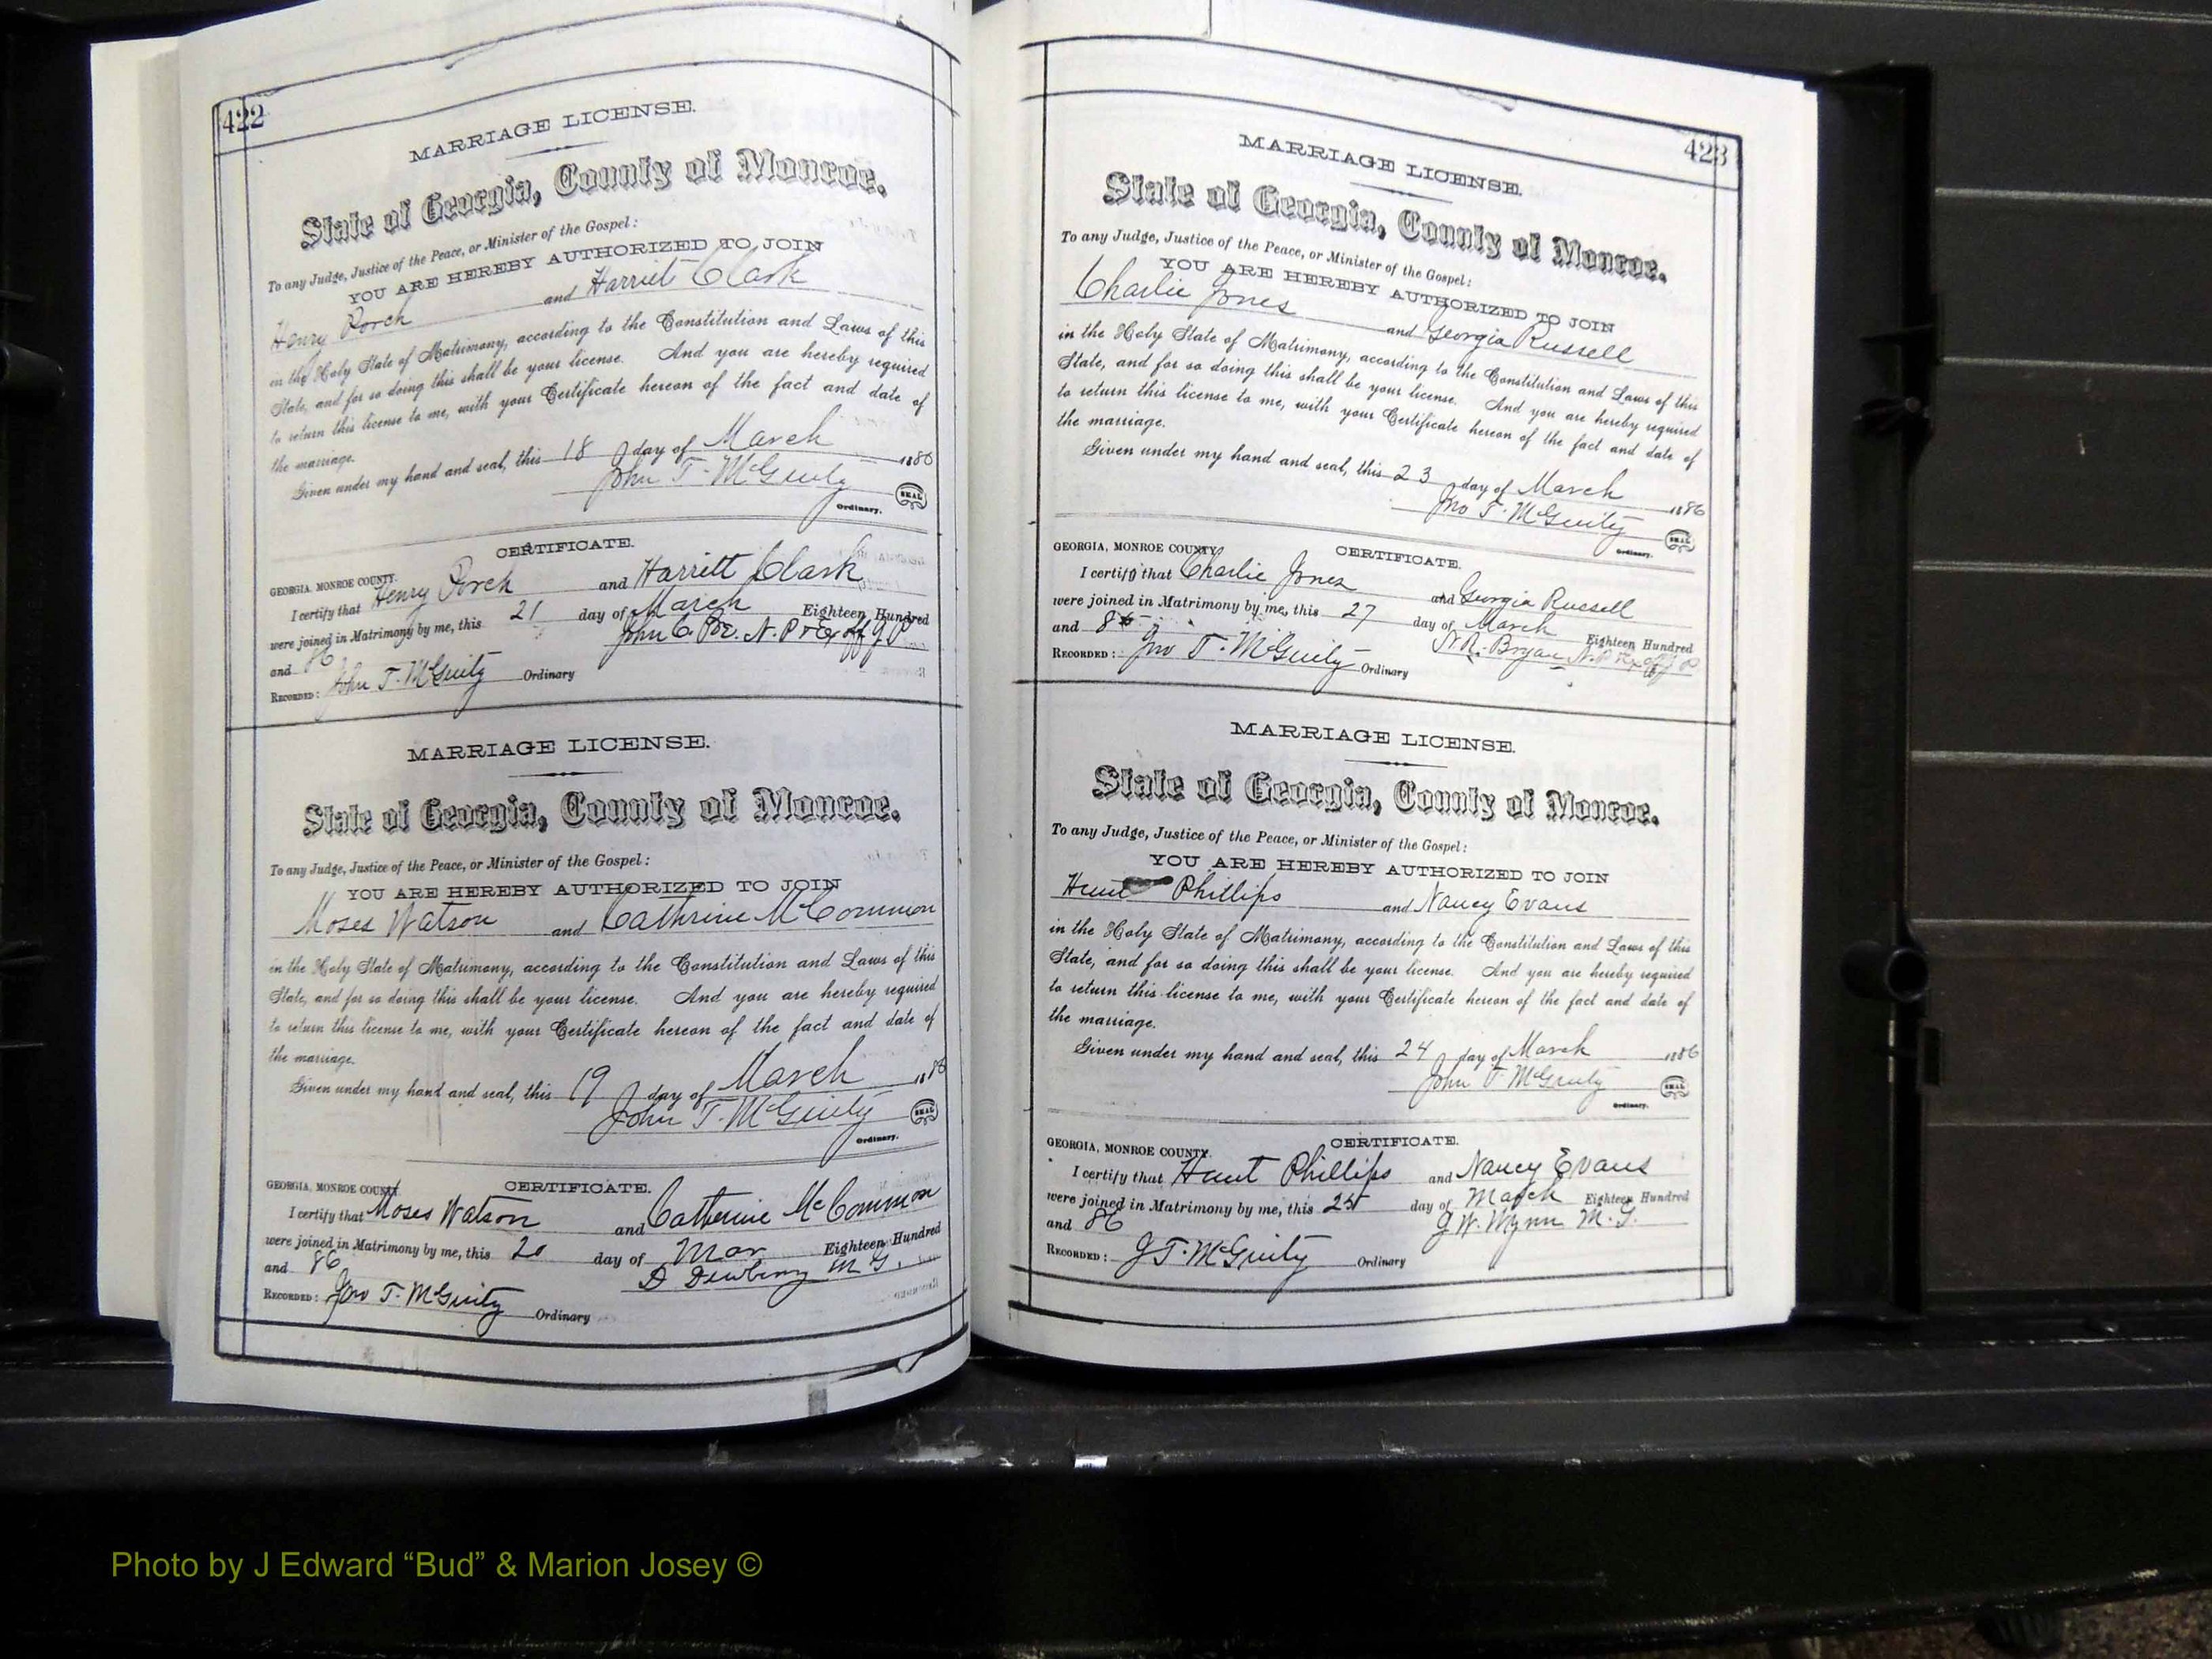 422
MARRIAGE LICENSE.
State of Georgia, County of Monroe.
To any Judge, Justice of the Peace, or Minister of the Gospel:
YOU ARE HEREBY AUTHORIZED TO JOIN
Henry Porch and Harriet Clark
in the Holy State of Matrimony, according to the Constitution and Laws of this
State, and for so doing this shall be your license. And you are hereby required
to return this license to me, with your Certificate hereon of the fact and date of
the marriage.
Given under my hand and seal, this 18 day of March 1886
John T. McGinty SEAL
Ordinary.
CERTIFICATE.
GEORGIA, MONROE COUNTY.
I certify that Henry Porch and Harriett Clark
were joined in Matrimony by me, this 21 day of March Eighteen Hundred
and 86 John C. N. P & Ex off J P
RECORDED: John T. McGinty Ordinary
MARRIAGE LICENSE.
State of Georgia, County of Monroe.
To any Judge, Justice of the Peace, or Minister of the Gospel:
YOU ARE HEREBY AUTHORIZED TO JOIN
Moses Watson and Cathrine McCommon
in the Holy State of Matrimony, according to the Constitution and Laws of this
State, and for so doing this shall be your license. And you are hereby required
to return this license to me, with your Certificate hereon of the fact and date of
the marriage.
Given under my hand and seal, this 19 day of March 1886
John T. McGinty SEAL
Ordinary.
CERTIFICATE.
GEORGIA, MONROE COUNTY.
I certify that Moses Watson and Catherine McCommon
were joined in Matrimony by me, this 20 day of Mar Eighteen Hundred
and 86 D Dewberry M G.
RECORDED: Jno T. McGinty Ordinary
423
MARRIAGE LICENSE.
State of Georgia, County of Monroe.
To any Judge, Justice of the Peace, or Minister of the Gospel:
YOU ARE HEREBY AUTHORIZED TO JOIN
Charlie Jones and Georgia Russell
in the Holy State of Matrimony, according to the Constitution and Laws of this
State, and for so doing this shall be your license. And you are hereby required
to return this license to me, with your Certificate hereon of the fact and date of
the marriage.
Given under my hand and seal, this 23 day of March 1886
Jno T. McGinty SEAL
Ordinary.
CERTIFICATE.
GEORGIA, MONROE COUNTY.
I certify that Charlie Jones and Georgia Russell
were joined in Matrimony by me, this 27 day of March Eighteen Hundred
and N. R. Bryan N. P Ex off J P
RECORDED: Jno T. McGinty Ordinary
MARRIAGE LICENSE.
State of Georgia, County of Monroe.
To any Judge, Justice of the Peace, or Minister of the Gospel:
YOU ARE HEREBY AUTHORIZED TO JOIN
Hunt Phillips and Nancy Evans
in the Holy State of Matrimony, according to the Constitution and Laws of this
State, and for so doing this shall be your license. And you are hereby required
to return this license to me, with your Certificate hereon of the fact and date of
the marriage.
Given under my hand and seal, this 24 day of March 1886
John T. McGinty SEAL
Ordinary.
CERTIFICATE.
GEORGIA, MONROE COUNTY.
I certify that Hunt Phillips and Nancy Evans
were joined in Matrimony by me, this 25 day of March Eighteen Hundred
and 86 J. W. Mynn M. G.
RECORDED: J T. McGinty Ordinary
Photo by J Edward “Bud” & Marion Josey ©